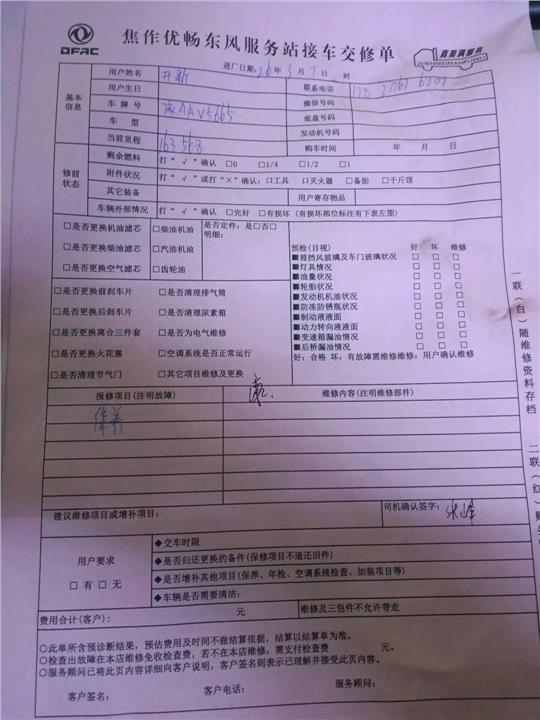 DFAC
焦作优畅东风服务站接车交修单
真要满服务
ZHENYAOMANFUWU
进厂日期:26年3月7日 时
基本信息
用户姓名
联系电话
用户生日
微信号码
车牌号 豫AAV5665
底盘号码
车型
发动机号码
当前里程 163568
购车时间 年 月 日
修前状态
剩余燃料 打“√”确认 □0 □1/4 □1/2 □1
附件状况 打“√”或打“×”确认:□工具 □灭火器 □备胎 □千斤顶
其它装备
用户寄存物品
车辆外部情况 打“√”确认 □完好 □有损坏(有损坏部位标注有下表左图)
□是否更换机油滤芯 □柴油机油 是否定件:是□否□
明细:
□是否更换柴油滤芯 □汽油机油
□是否更换空气滤芯 □齿轮油
预检(目视) 好 坏 维修
■前挡风玻璃及车门玻璃状况 □ □ □
■灯具情况 □ □ □
■油量状况 □ □ □
■轮胎状况 □ □ □
■发动机机油状况 □ □ □
■防冻防锈瓶状况 □ □ □
■制动液液面 □ □ □
■动力转向液液面 □ □ □
■变速箱漏油情况 □ □ □
■后桥漏油情况 □ □ □
好:合格 坏:有故障需维修维修:用户确认维修
□是否更换前刹车片 □是否清理排气筒
□是否更换后刹车片 □是否清理尿素箱
□是否更换离合三件套 □是否为电气维修
□是否更换火花塞 □空调系统是否正常运行
□是否清理节气门 □其它项目维修及更换
报修项目(注明故障) 维修内容(注明维修部件)
保养
建议维修项目或增补项目:
司机确认签字:
用户要求
□有 □无
◆交车时限
◆是否归还更换的备件(保修项目不退还旧件)
◆是否增补其他项目(保养、年检、空调系统检查、加装项目等)
◆车辆是否需要清洁:
费用合计(客户): 元
维修及三包件不允许带走
○此单所含预诊断结果,预估费用及时间不做结算依据,结算以结算单为准。
○检查出故障在本店维修免收检查费,若不在本店维修,需支付检查费 元。
○服务顾问已将此页内容详细向客户说明,客户签名则表示已理解并接受此页内容。
客户签名: 客户电话: 服务顾问:
一联(白)随维修资料存档
二联(红)